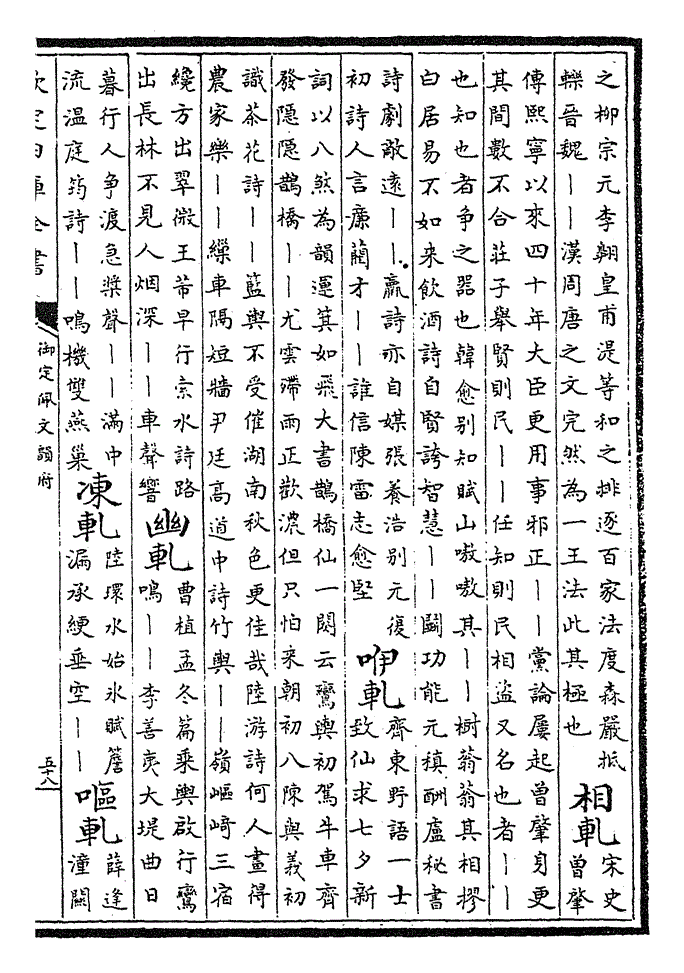 之柳宗元李翱皇甫湜等和之排逐百家法度森嚴抵
轢晉魏丨丨漢周唐之文完然為一王法此其極也
相軋
宋史
曾肇
傳熙寧以來四十年大臣更用事邪正丨丨黨論屢起曾肇身更
其間數不合莊子舉賢則民丨丨任知則民相盜又名也者丨丨
也知也者争之器也韓愈別知賦山嗷嗷其丨丨樹蓊蓊其相摎
白居易不如来飲酒詩自賢誇智慧丨丨鬬功能元稹酬盧秘書
詩劇敵逺丨丨羸詩亦自媒張養浩别元復
初詩人言廉藺才丨丨誰信陳雷志愈堅
咿軋
齊東野語一士
致仙求七夕新
詞以八煞為韻運箕如飛大書鵲橋仙一闋云鸞輿初駕牛車齊
發隱隱鵲橋丨丨尤雲殢雨正歡濃但只怕来朝初八陳與義初
識茶花詩丨丨籃輿不受催湖南秋色更佳哉陸游詩何人畫得
農家樂丨丨繰車隔短牆尹廷高道中詩竹輿丨丨嶺嶇﨑三宿
繞方出翠微王芾早行京水詩路
出長林不見人烟深丨丨車聲響
幽軋
曹植孟冬篇乘輿啟行鸞
鳴丨丨李善夷大堤曲日
暮行人争渡急槳聲丨丨滿中
流温庭筠詩丨丨鳴機雙燕巢
凍軋
陸環水始氷賦簷
漏承綆垂空丨丨
嘔軋
薛逢
潼關
欽定四庫全書
御定佩文韻府
五十八